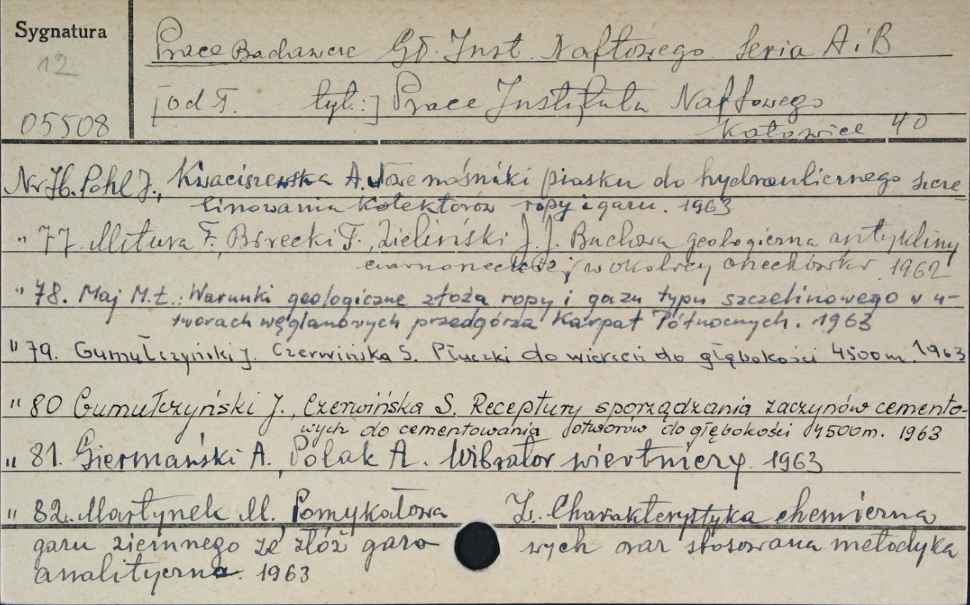 Sygnatura
12
05508
Prace Badawcze Gł. Inst. Naftowego Seria A i B
[od T. tyt.:] Prace Instytutu Naftowego
Katowice 40
Nr 76. Pohl J., Kwaciszewska A. Nowe nośniki piasku do hydraulicznego szcze
linowania kolektorów ropy i gazu. 1963
" 77. Mitura F., Birecki T., Zieliński J. J. Budowa geologiczna antykliny
czarnoneckiej w okolicy 1962
" 78. Maj M. t. Warunki geologiczne złoża ropy i gazu typu szczelinowego w u-
tworach węglanowych przedgórza Karpat Północnych. 1963
" 79. Gumułczyński J. Czerwińska S. Płuczki do wierceń do głębokości 4500m. 1963
" 80 Gumułczyński J., Czerwińska S. Receptury sporządzania zaczynów cemento-
wych do cementowania otworów do głębokości 4500m. 1963
" 81. Giermański A., Polak A. Wibrator wiertniczy. 1963
" 82. Martynek M. Pomykałowa Z. Charakterystyka chemiczna
gazu ziemnego ze złóż gazo wych oraz stosowana metodyka
analityczna. 1963